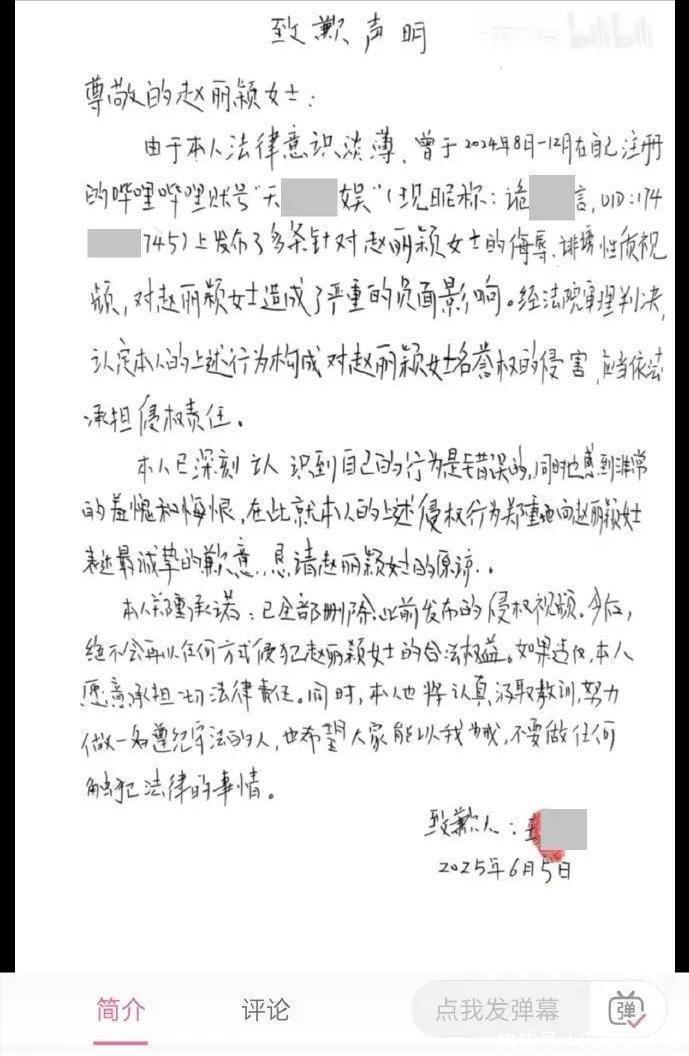 致歉声明
bilibili
尊敬的赵丽颖女士：
由于本人法律意识淡薄，曾于2024年8日-12月在自己注册
的哔哩哔哩账号“天 娱”（现昵称：诡 言，UID：174
745）上发布了多条针对赵丽颖女士的侮辱、诽谤性质视
频，对赵丽颖女士造成了严重的负面影响。经法院审理判决，
认定本人的上述行为构成对赵丽颖女士名誉权的侵害，应当依法
承担侵权责任。
本人已深刻认识到自己的行为是错误的，同时也感到非常
的羞愧和悔恨，在此就本人的上述侵权行为郑重地向赵丽颖女士
表达最诚挚的歉意，恳请赵丽颖女士的原谅。
本人郑重承诺：已全部删除此前发布的侵权视频。今后，
绝不会再以任何方式侵犯赵丽颖女士的合法权益。如果违反，本人
愿意承担一切法律责任。同时，本人也将认真汲取教训，努力
做一名遵纪守法的人，也希望大家能以我为戒，不要做任何
触犯法律的事情。
致歉人：
2025年6月5日
简介 评论 点我发弹幕 弹